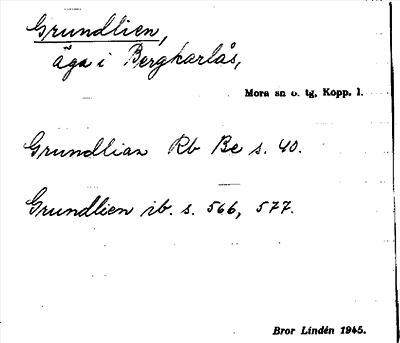 Grundlien,
äga i Bergkarlås,
Mora sn o. tg, Kopp. l.
Grundlian Rb Be s. 40.
Grundlien ib. s. 566, 577.
Bror Lindén 1945.